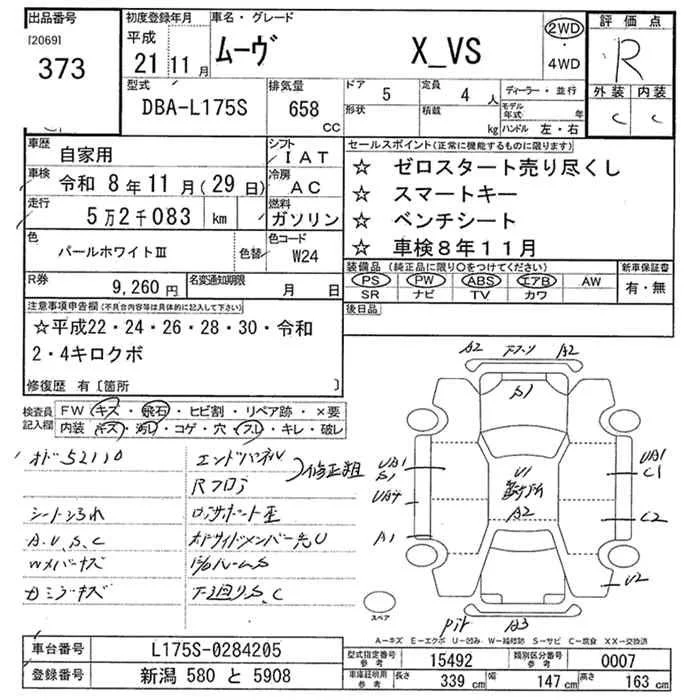 出品番号
[2069]
373
初度登録年月
平成
21 11 月
車名・グレード
ムーヴ X_VS
2WD
・
4WD
評価点
R
外装 内装
C C
型式
DBA-L175S
排気量
658
cc
ドア
5
定員
4 人
形状
積載
kg
ディーラー・並行
モデル年式 年
ハンドル 左・右
車歴
自家用
シフト
I A T
車検
令和 8年 11月 (29日)
冷房
A C
走行
5万2千083 km
燃料
ガソリン
色
パールホワイトⅢ
色替
色コード
W24
R券
9,260円
名変通知期限
月 日
セールスポイント(正常に機能するものに限ります)
☆ ゼロスタート売り尽くし
☆ スマートキー
☆ ベンチシート
☆ 車検8年11月
装備品(純正品に限り○をつけてください)
PS PW ABS エアB AW
SR ナビ TV カワ
新車保証書
有・無
後日品
注意事項申告欄(不具合内容等は具体的に記入して下さい)
☆平成22・24・26・28・30・令和
2・4キロクボ
修復歴 有〔箇所 〕
検査員記入欄
FW キズ・飛石・ヒビ割・リペア跡・×要
内装 キズ・汚レ・コゲ・穴・スレ・キレ・破レ
オド52110
エンドパネル
Rフロア
修正粗
シートシミ汚れ
A.U.S.C
コアサポート歪
Wメバーキズ
カミブキズ
下廻りS、C
A2 A2
S1
UA1
S1
UA4
A1
U1
A2
UA1
C1
C2
U2
A3
スペア
A—キズ E—エクボ U—凹み W—補修跡 S—サビ C—腐食 XX—交換済
車台番号
L175S-0284205
登録番号
新潟 580 と 5908
型式指定番号
参考
15492
類別区分番号
参考
0007
車庫証明用
参考
長さ 339 cm
幅 147 cm
高さ 163 cm